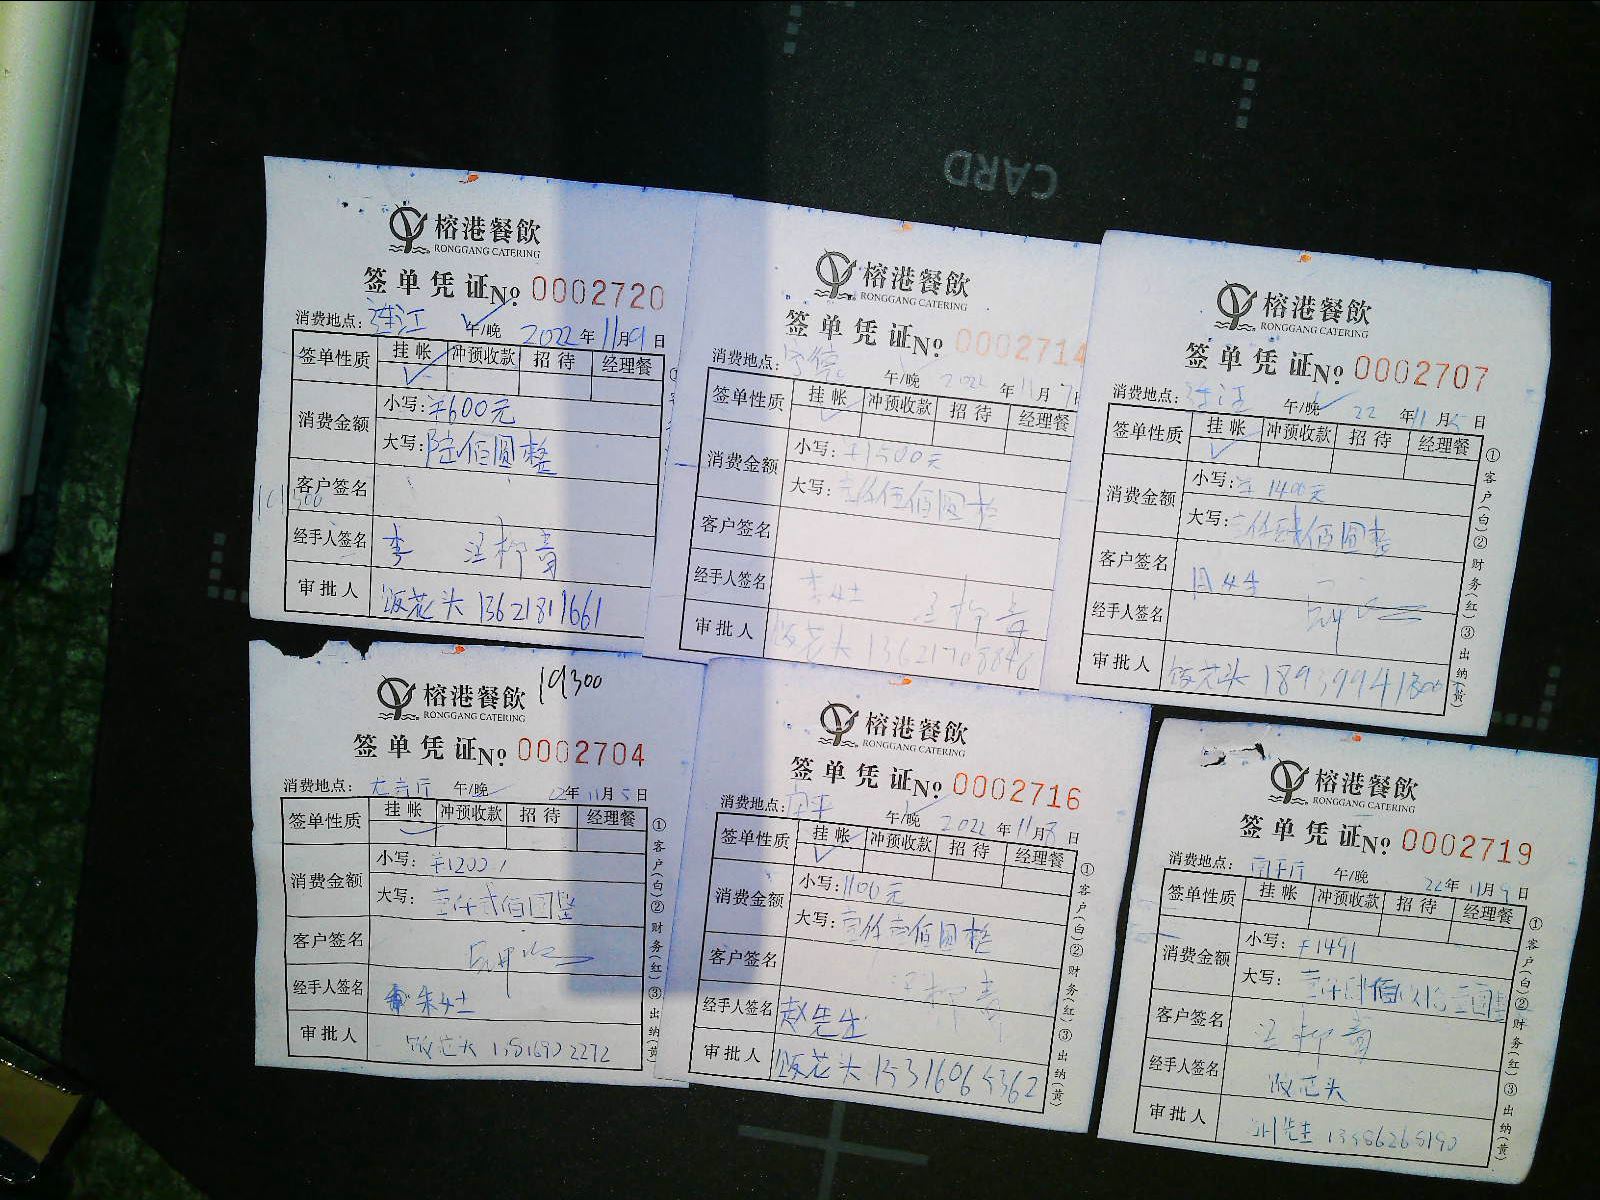 CARD
榕港餐飲
RONGGANG CATERING
签单凭证 No 0002720
消费地点：连江 午/晚 2022年11月9日
签单性质 挂帐 冲预收款 招待 经理餐
消费金额 小写：¥600元
大写：陆佰圆整
客户签名
经手人签名 李 汪柳青
审批人 饭花头 13621811661
榕港餐飲
RONGGANG CATERING
签单凭证 No 0002714
消费地点：宁德 午/晚 2022年11月7日
签单性质 挂帐 冲预收款 招待 经理餐
消费金额 小写：¥1500元
大写：壹仟伍佰圆整
客户签名
经手人签名 李女士 汪柳青
审批人 饭花头 13621708846
榕港餐飲
RONGGANG CATERING
签单凭证 No 0002707
消费地点：连江 午/晚 22年11月5日
签单性质 挂帐 冲预收款 招待 经理餐
消费金额 小写：¥1400元
大写：壹仟肆佰圆整
客户签名
经手人签名
审批人 饭花头
①客户(白)②财务(红)③出纳(黄)
榕港餐飲 19300
RONGGANG CATERING
签单凭证 No 0002704
消费地点： 午/晚 22年11月5日
签单性质 挂帐 冲预收款 招待 经理餐
消费金额 小写：¥1200
大写：壹仟贰佰圆整
客户签名
经手人签名 朱女士
审批人 饭花头 13816922272
①客户(白)②财务(红)③出纳(黄)
榕港餐飲
RONGGANG CATERING
签单凭证 No 0002716
消费地点：南平 午/晚 2022年11月8日
签单性质 挂帐 冲预收款 招待 经理餐
消费金额 小写：1100元
大写：壹仟壹佰圆整
客户签名 汪柳青
经手人签名 赵先生
审批人 饭花头 15316065362
①客户(白)②财务(红)③出纳(黄)
榕港餐飲
RONGGANG CATERING
签单凭证 No 0002719
消费地点：南平厅 午/晚 22年11月9日
签单性质 挂帐 冲预收款 招待 经理餐
消费金额 小写：¥1491
大写：
客户签名 汪柳青
经手人签名 饭花头
审批人 先生
①客户(白)②财务(红)③出纳(黄)